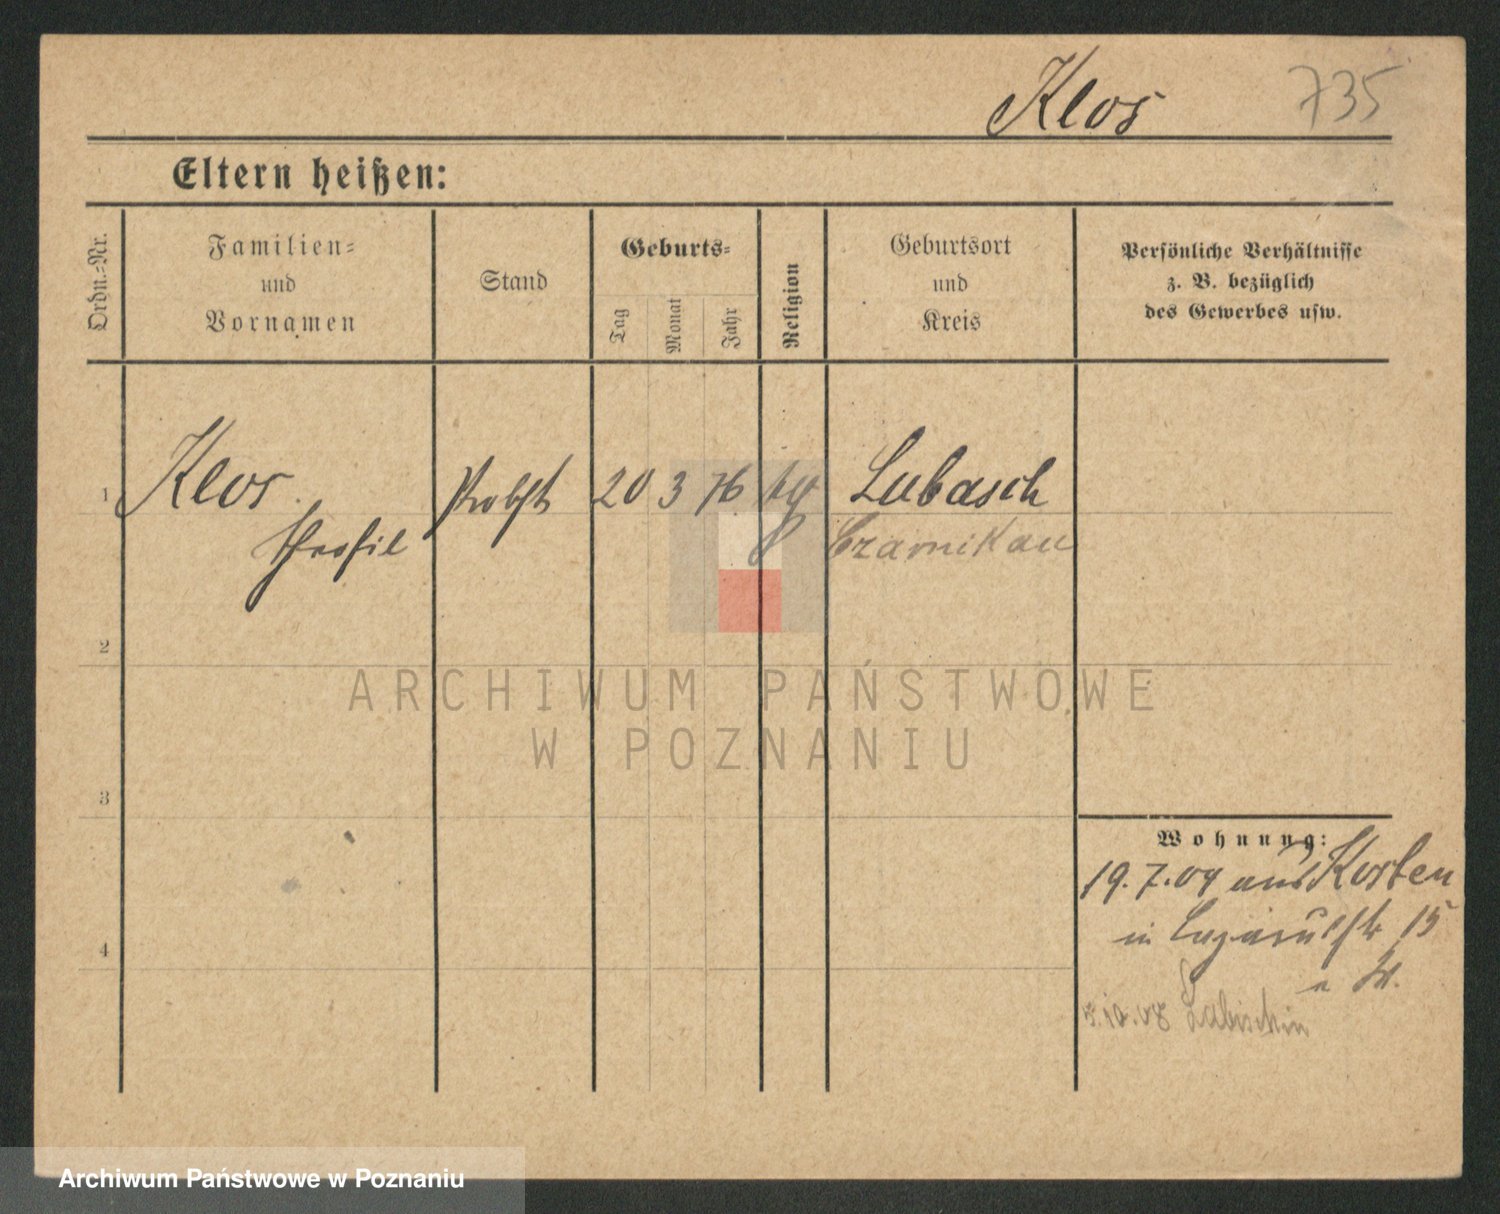 Klos 735
Eltern heißen:
Ordn.=Nr.
Familien=
und
Vornamen
Stand
Geburts=
Tag
Monat
Jahr
Religion
Geburtsort
und
Kreis
Persönliche Verhältnisse
z. B. bezüglich
des Gewerbes usw.
1 Klos Probst 20 3 76 Lubasch
Czarnikau
2
ARCHIWUM PAŃSTWOWE
W POZNANIU
3
Wohnung:
19.7.09 aus Kosten
in 15
4
Labischin
Archiwum Państwowe w Poznaniu